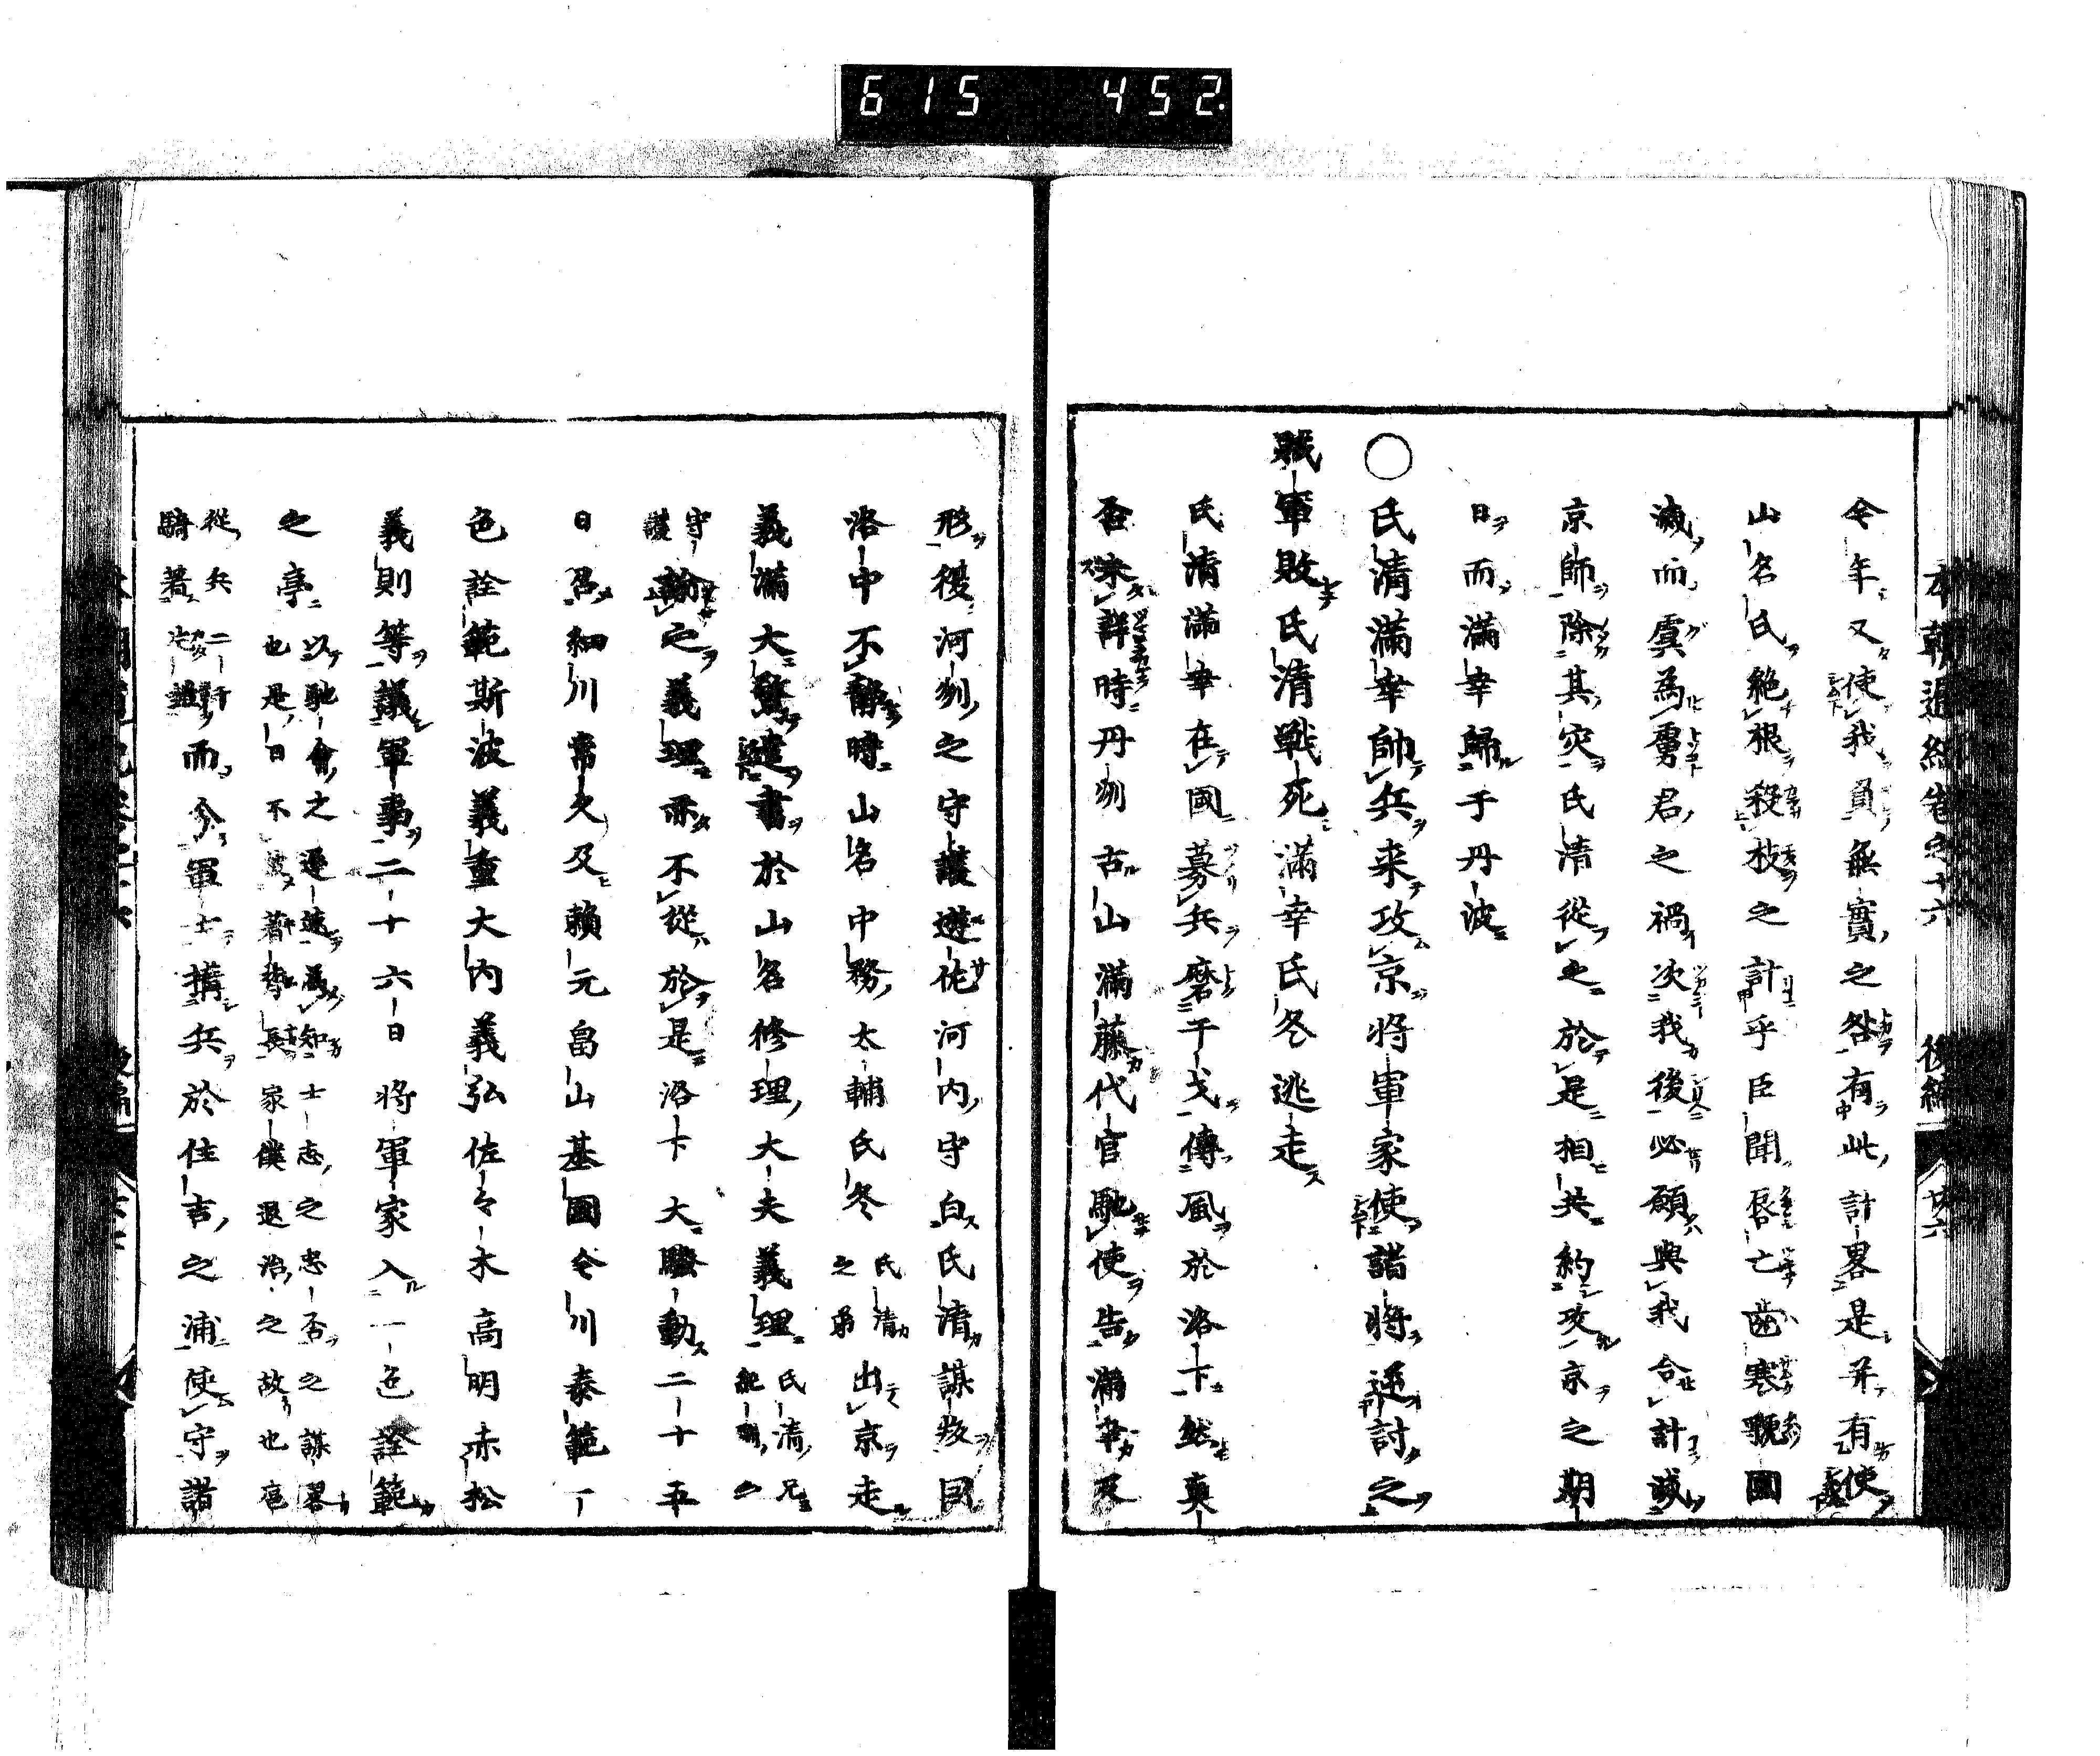 615 452
本朝通紀卷之十六 後編 廿六
今年又使我負無實之咎有此計畧是并有使
山名氏絶根殺枝之計乎臣聞唇亡齒寒虢國
滅而虞為虜君之禍次我後必願與我合計滅
京師除其災氏清從之於是相共約攻京之期
日而滿幸歸于丹波
○氏清滿幸帥兵来攻京將軍家使諸將逆討之
賊軍敗氏清戰死滿幸氏冬逃走
氏清滿幸在國募兵磨干戈傳風於洛下然真
否未詳時丹刕古山滿藤代官馳使告滿幸及
形後河刕之守護遊佐河内守白氏清謀叛同
洛中不靜時山名中務太輔氏冬氏清之弟出京走
義滿大驚遣書於山名修理大夫義理氏清兄紀刕
守護諭之義理亦不從於是洛下大騷動二十五
日召細川常久及頼元畠山基國今川泰範一
色詮範斯波義重大内義弘佐々木高明赤松
義則等議軍事二十六日將軍家入一色詮範
之亭以馳會之遅速為知士志之忠否之謀畧
也是日不著家僕退治之故也
從兵二千騎著而令軍士構兵於住吉之浦使守諸